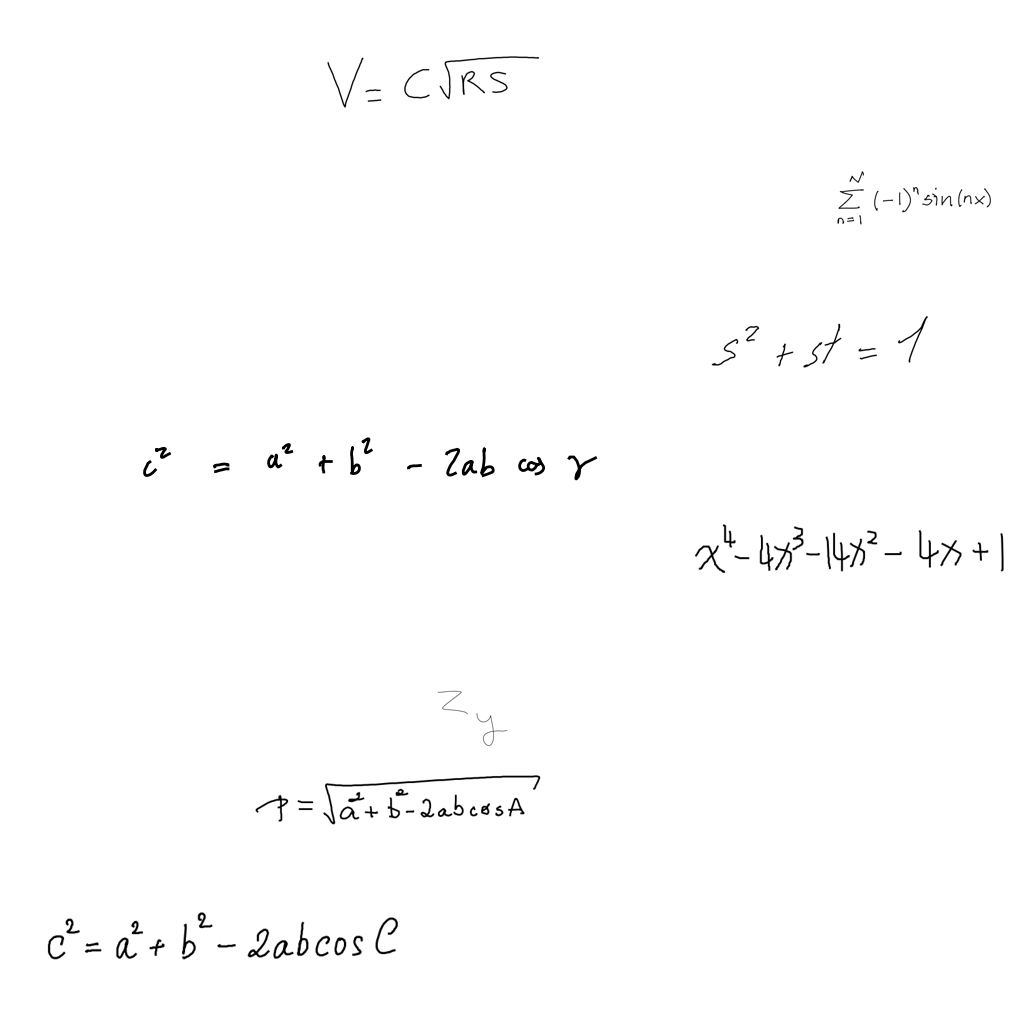 V = C√RS
∑_{n=1}^{N} (-1)^n sin(nx)
s² + st = 1
c² = a² + b² - 2ab cos γ
x⁴ - 4x³ - 14x² - 4x + 1
z_y
p = √(a² + b² - 2ab cos A)
c² = a² + b² - 2ab cos C